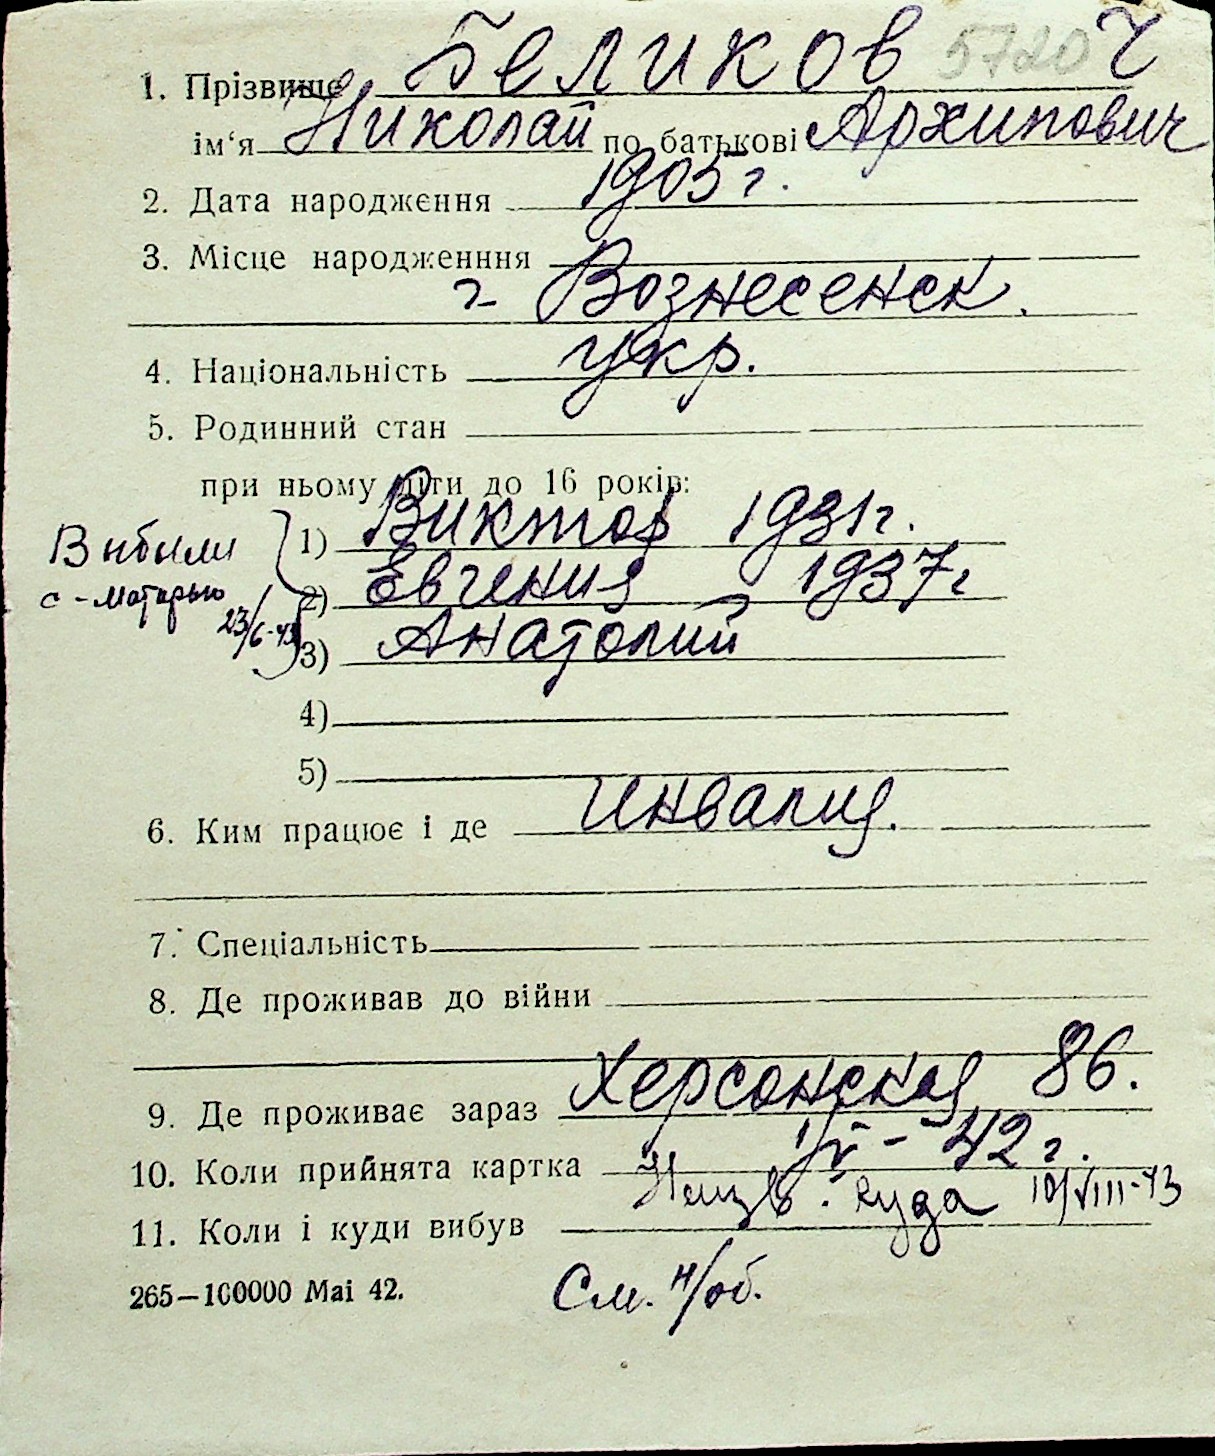 1. Прізвище Беликов 5720 Ч
ім‘я Николай по батькові Архипович
2. Дата народження 1905 г.
3. Місце народженння
г Вознесенск.
4. Національність укр.
5. Родинний стан
при ньому діти до 16 років:
1) Виктор 1931 г.
2) Евгения 1937 г
3) Анатолий
Выбыли
с-матерью
23/6-43
4)
5)
6. Ким працює і де Инвалид.
7. Спеціальність
8. Де проживав до війни
9. Де проживає зараз Херсонская 86.
10. Коли прийнята картка 1/V-42 г.
11. Коли і куди вибув Неизв. куда 10/VIII-43
265—100000 Mai 42.
См. н/об.